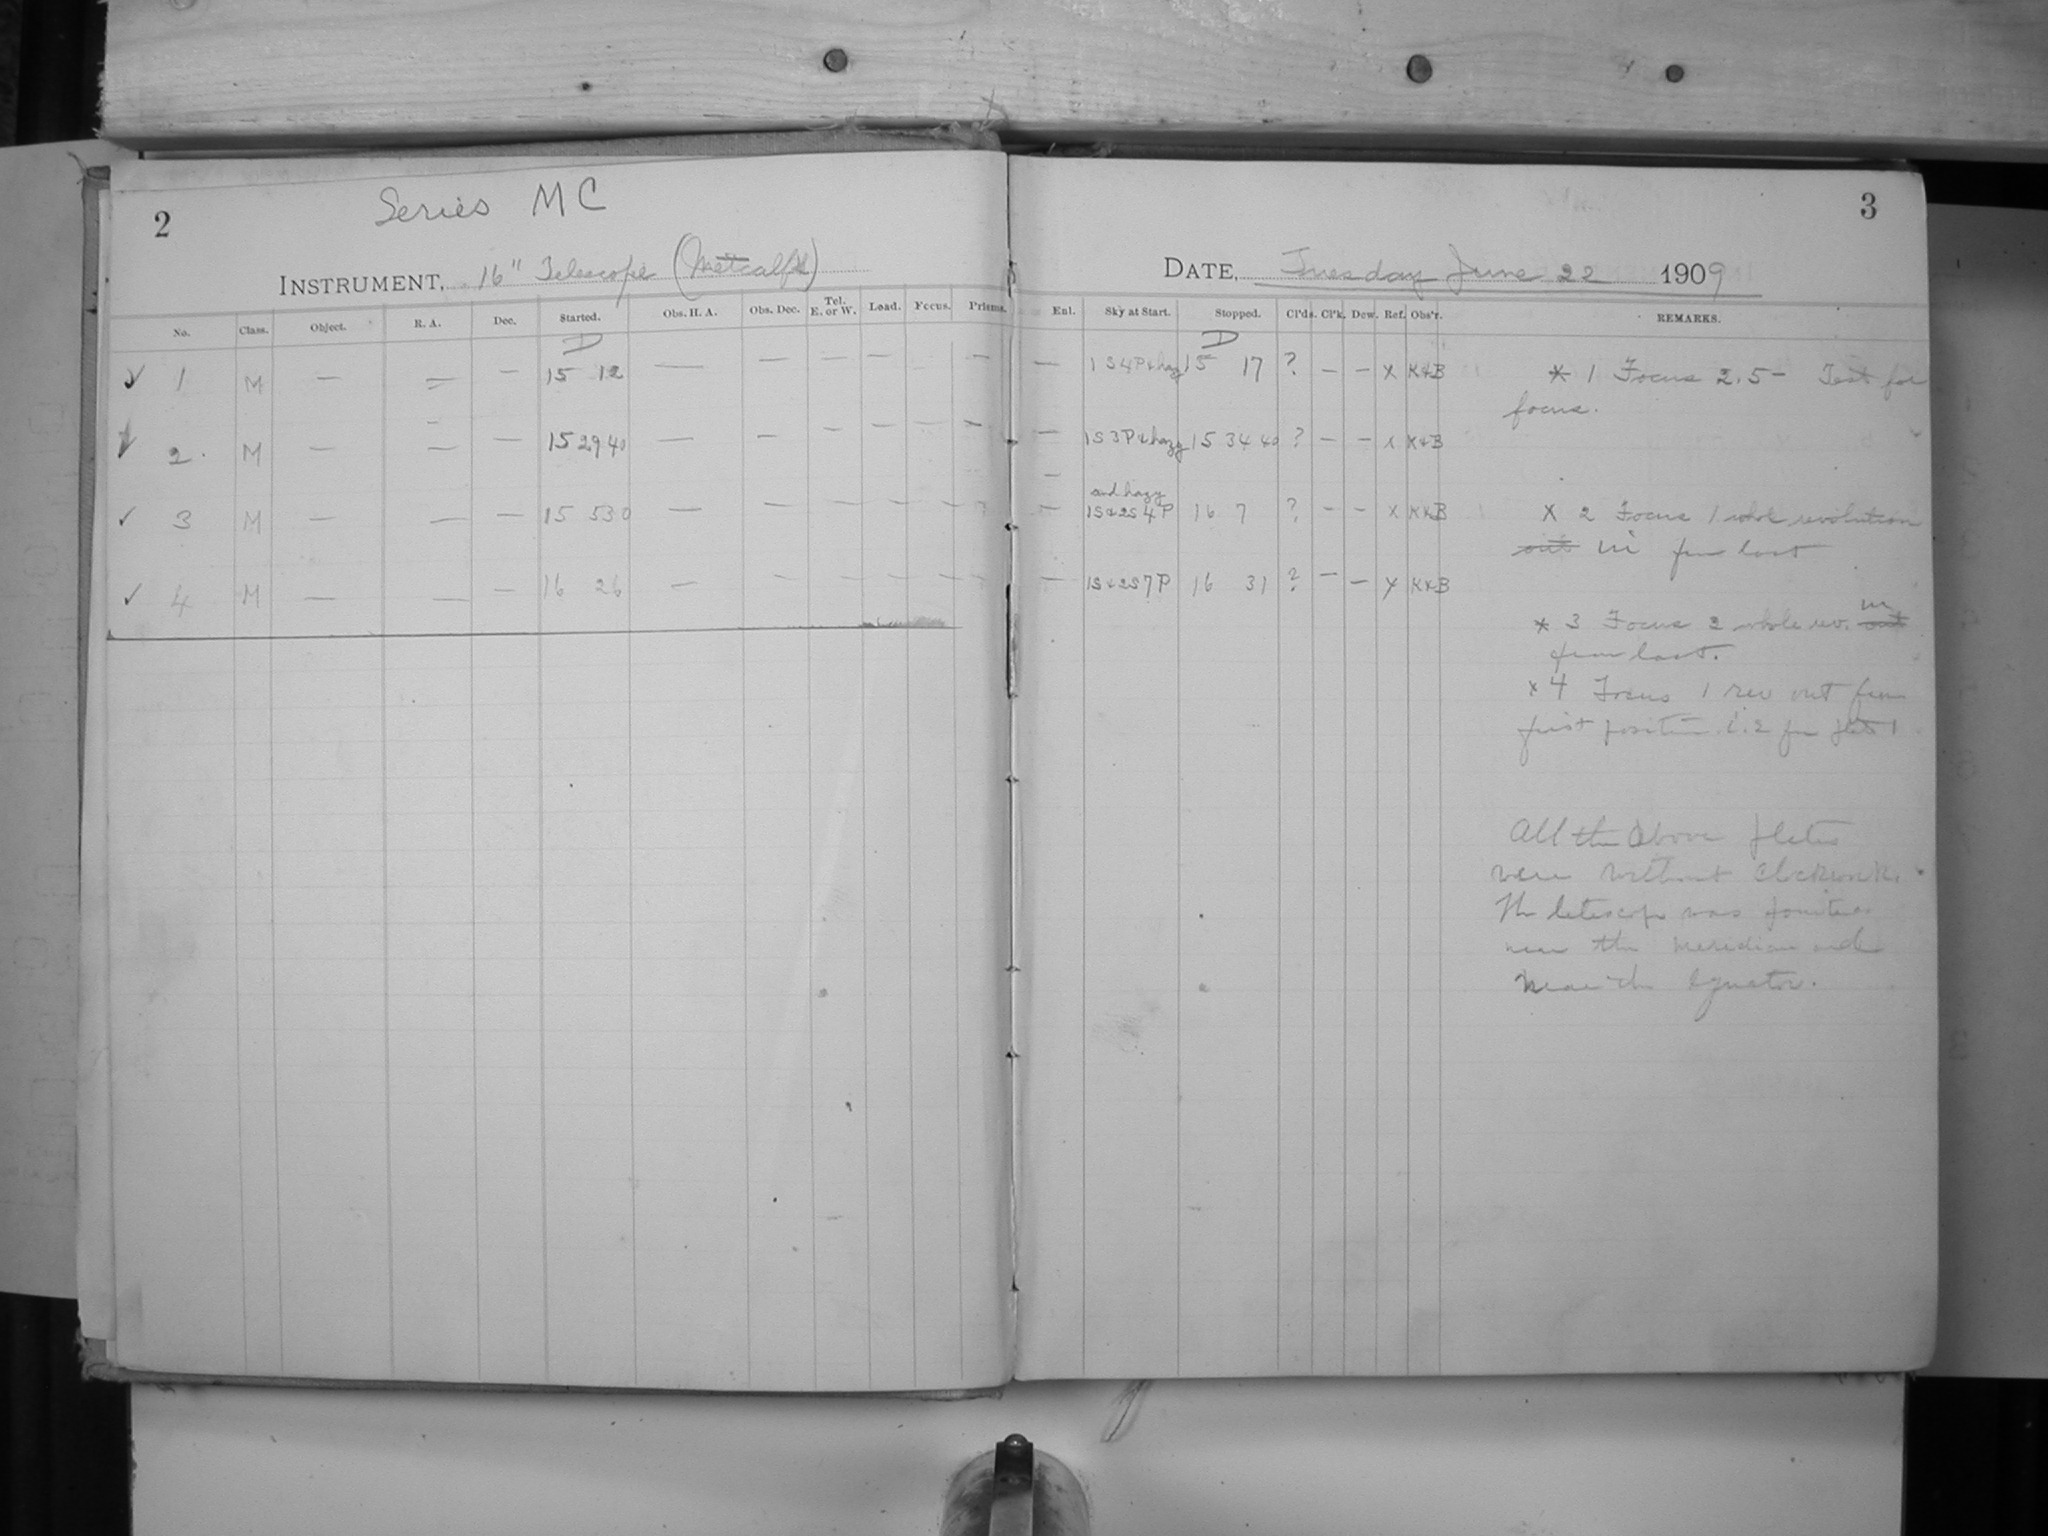 2
Series M C
INSTRUMENT, 16" Telescope (Metcalf)
No. Class. Object. R. A. Dec. Started. Obs. H. A. Obs. Dec. Tel. E. or W. Load. Focus. Prisms.
D
✓ 1 M — = — 15 12 — — — — —
✓ 2. M — = — 15 29 40 — — — — — —
✓ 3 M — — — 15 53 0 — — — — — —
✓ 4 M — — — 16 26 — — — — — —
3
DATE, Tuesday June 22 1909
Enl. Sky at Start. Stopped. Cl'ds. Cl'k. Dew. Ref. Obs'r. REMARKS.
D
— 1S4P&hazy 15 17 ? — — x K&B
— 1S3P&hazy 15 34 40 ? — — x K&B
—
and hazy
— 1S&2S4P 16 7 ? — — x K&B
— 1S&2S7P 16 31 ? — — x K&B
* 1 Focus 2.5- Test for
focus.
X 2 Focus 1 whole revolution
out in from last
in
* 3 Focus 2 whole rev. out
from last.
x 4 Focus 1 rev out from
first position 1.2 for plate 1
All the above plates
were without clockwork.
The telescope was pointed
near the meridian and
near the Equator.